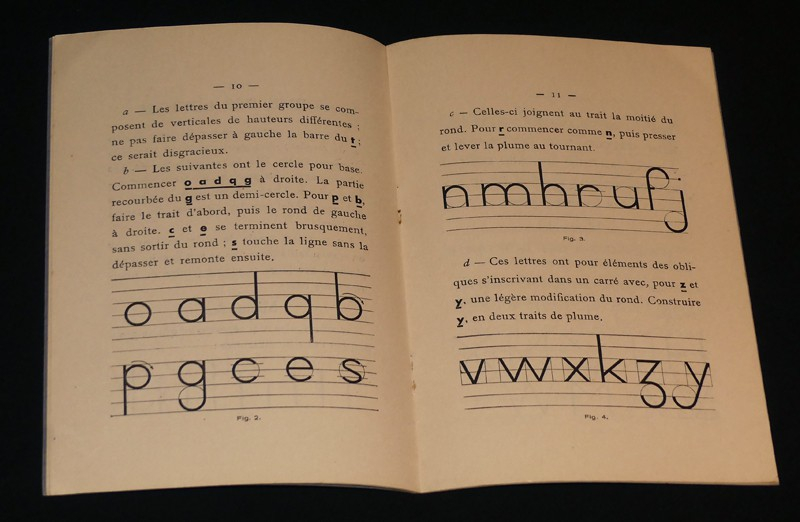 — 10 —
a — Les lettres du premier groupe se com-
posent de verticales de hauteurs différentes ;
ne pas faire dépasser à gauche la barre du t ;
ce serait disgracieux.
b — Les suivantes ont le cercle pour base.
Commencer o a d q g à droite. La partie
recourbée du g est un demi-cercle. Pour p et b,
faire le trait d'abord, puis le rond de gauche
à droite. c et e se terminent brusquement,
sans sortir du rond ; s touche la ligne sans la
dépasser et remonte ensuite.
o a d q b
p g c e s
Fig. 2.
— 11 —
c — Celles-ci joignent au trait la moitié du
rond. Pour r commencer comme n, puis presser
et lever la plume au tournant.
n m h r u f j
Fig. 3.
d — Ces lettres ont pour éléments des obli-
ques s'inscrivant dans un carré avec, pour z et
y, une légère modification du rond. Construire
y, en deux traits de plume.
v w x k z y
Fig. 4.